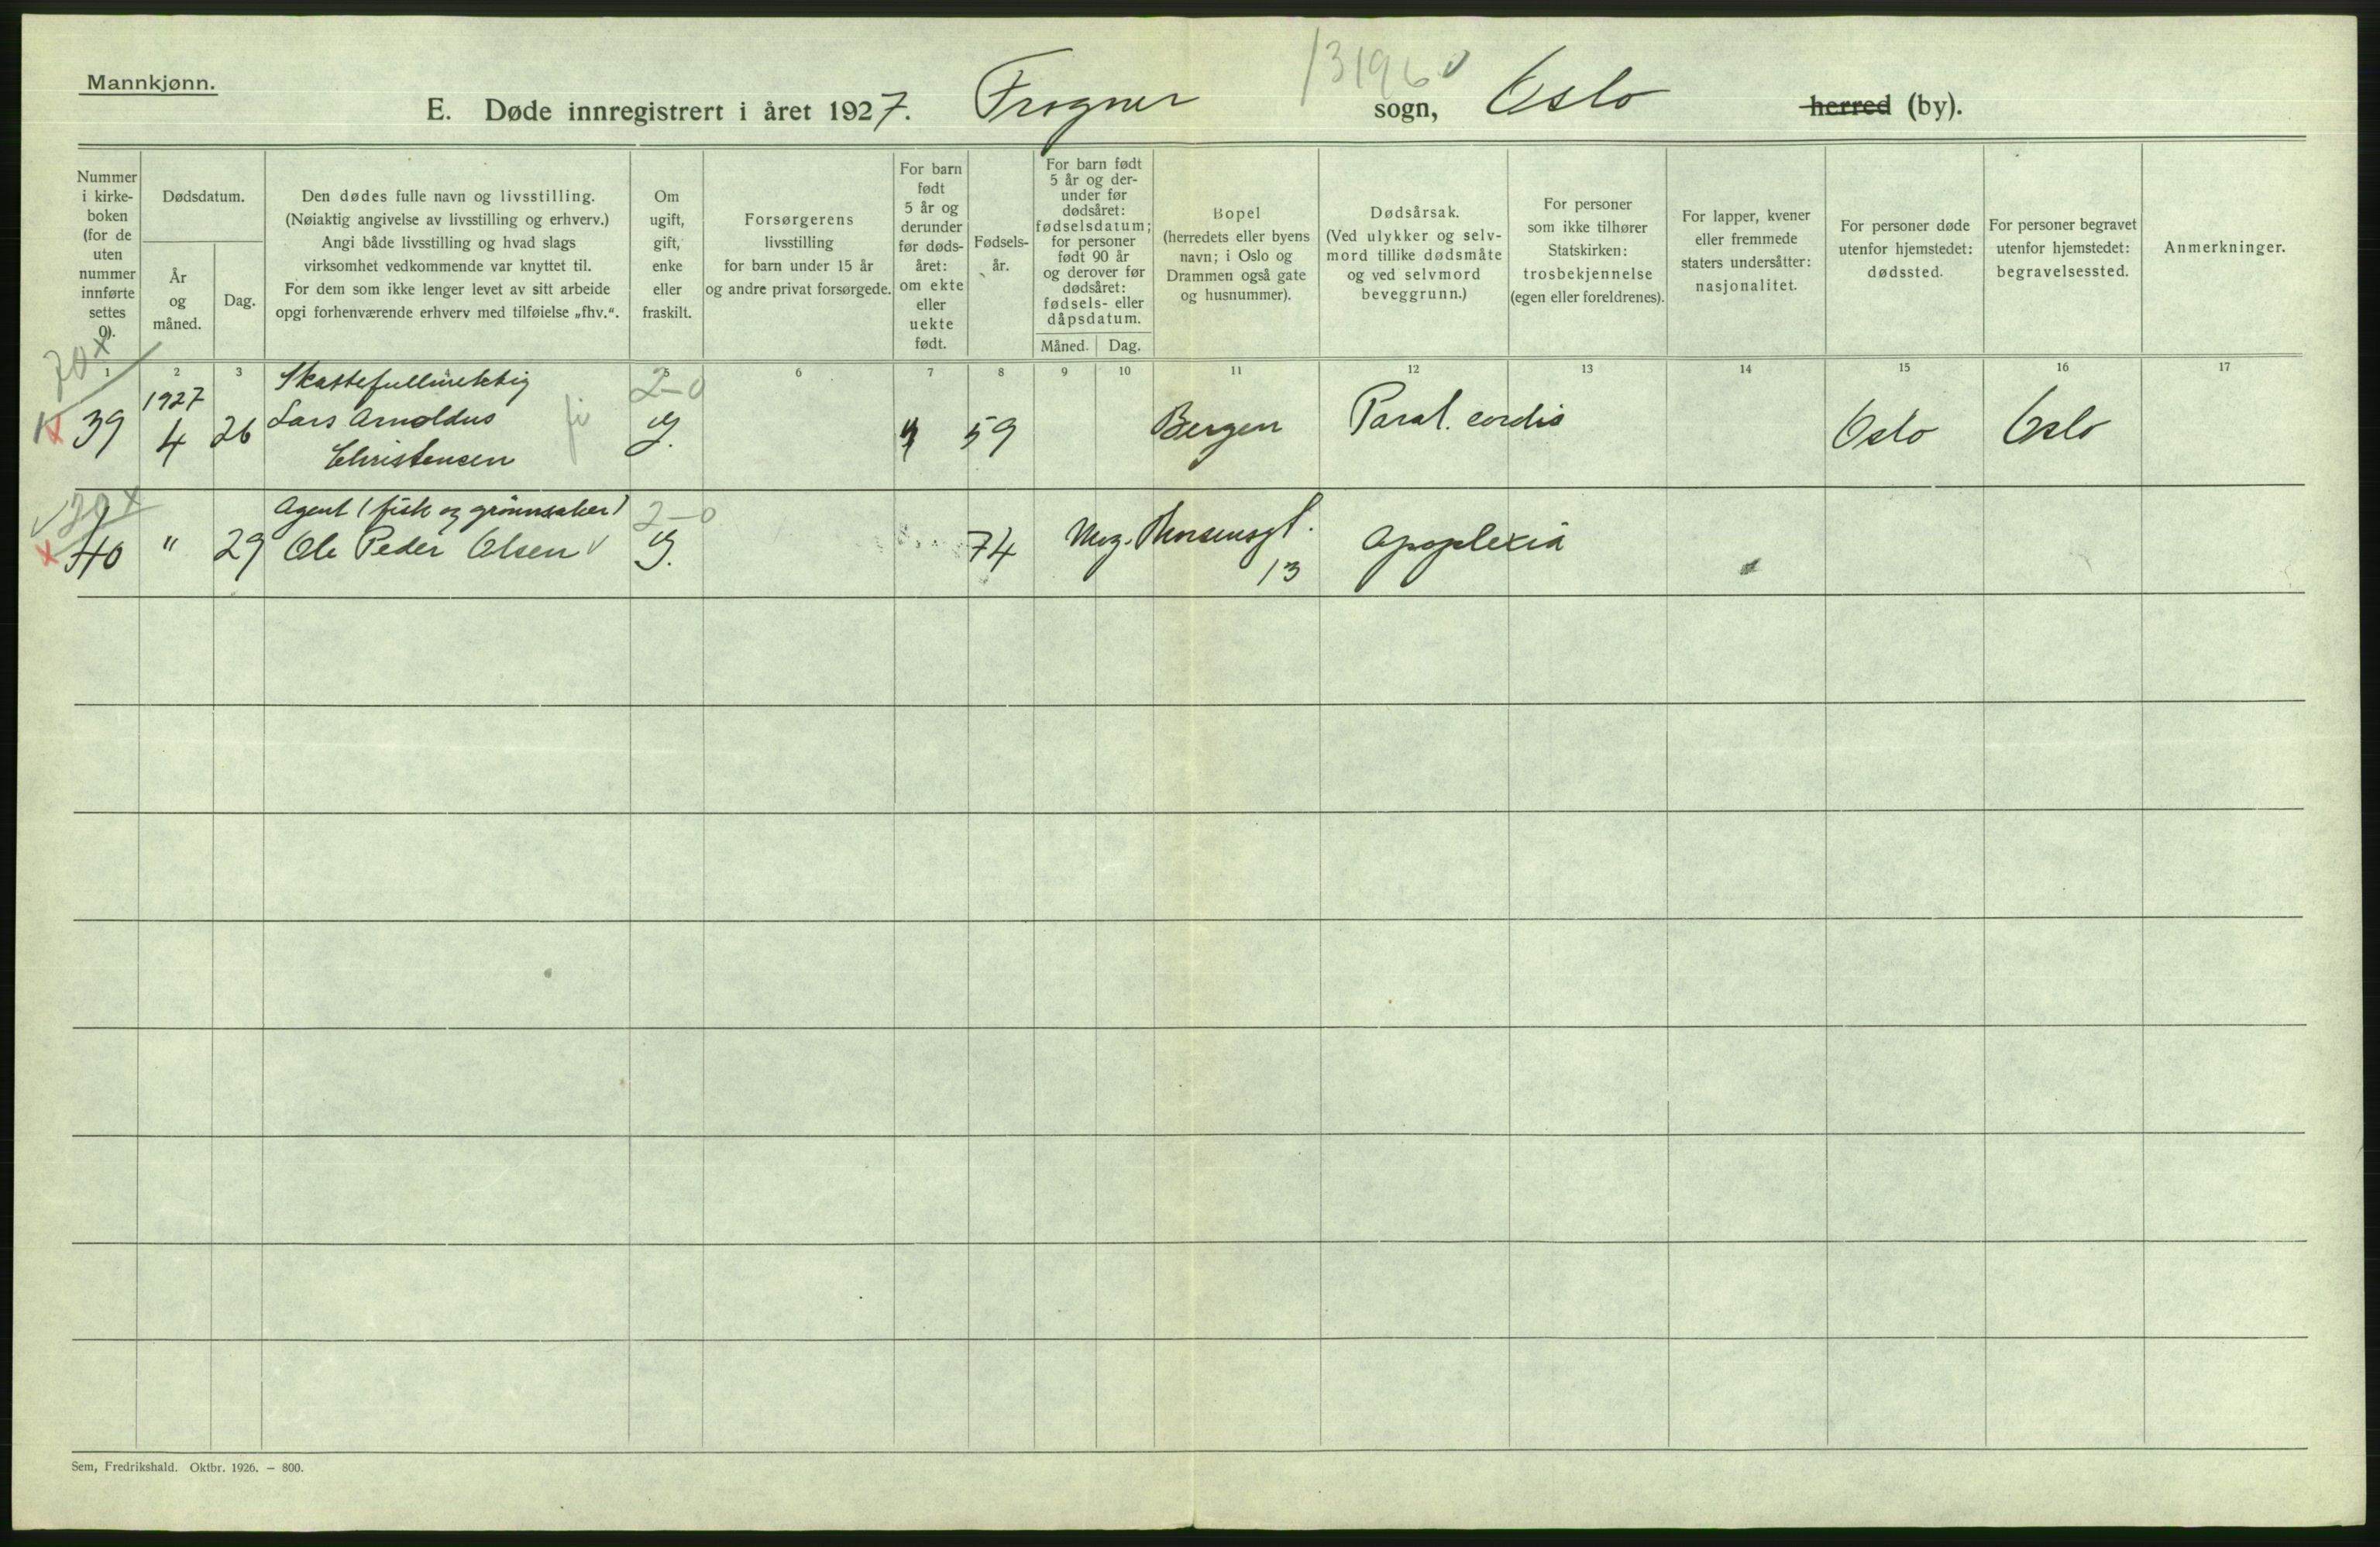 Mannkjønn.
131960
E. Døde innregistrert i året 1927. Frogner sogn, Oslo herred (by).
Nummer i kirke- boken (for de uten nummer innførte settes 0).
Dødsdatum.
År og måned.
Dag.
Den dødes fulle navn og livsstilling.
(Nøiaktig angivelse av livsstilling og erhverv.)
Angi både livsstilling og hvad slags
virksomhet vedkommende var knyttet til.
For dem som ikke lenger levet av sitt arbeide
opgi forhenværende erhverv med tilføielse „fhv.“.
Om ugift, gift, enke eller fraskilt.
Forsørgerens
livsstilling
for barn under 15 år
og andre privat forsørgede.
For barn født 5 år og derunder før døds- året: om ekte eller uekte født.
Fødsels- år.
For barn født 5 år og der- under før dødsåret: fødselsdatum; for personer født 90 år og derover før dødsåret: fødsels- eller dåpsdatum.
Måned.
Dag.
Bopel
(herredets eller byens
navn; i Oslo og
Drammen også gate
og husnummer).
Dødsårsak.
(Ved ulykker og selv-
mord tillike dødsmåte
og ved selvmord
beveggrunn.)
For personer
som ikke tilhører
Statskirken:
trosbekjennelse
(egen eller foreldrenes).
For lapper, kvener
eller fremmede
staters undersåtter:
nasjonalitet.
For personer døde
utenfor hjemstedet:
dødssted.
For personer begravet
utenfor hjemstedet:
begravelsessted.
Anmerkninger.
1 2 3 5 6 7 8 9 10 11 12 13 14 15 16 17
20 x
Skattefullmektig 2-0
1927
39 4 26 Lars Arnoldus G. 59 Bergen Paral. cordis Oslo Oslo
Christensen
20 x
Agent (fisk og grønnsaker) 2-0
40 " 29 Ole Peder Olsen G. 74 Mog. Thorsensgt. Apoplexia
13
Sem, Fredrikshald. Oktbr. 1926. — 800.